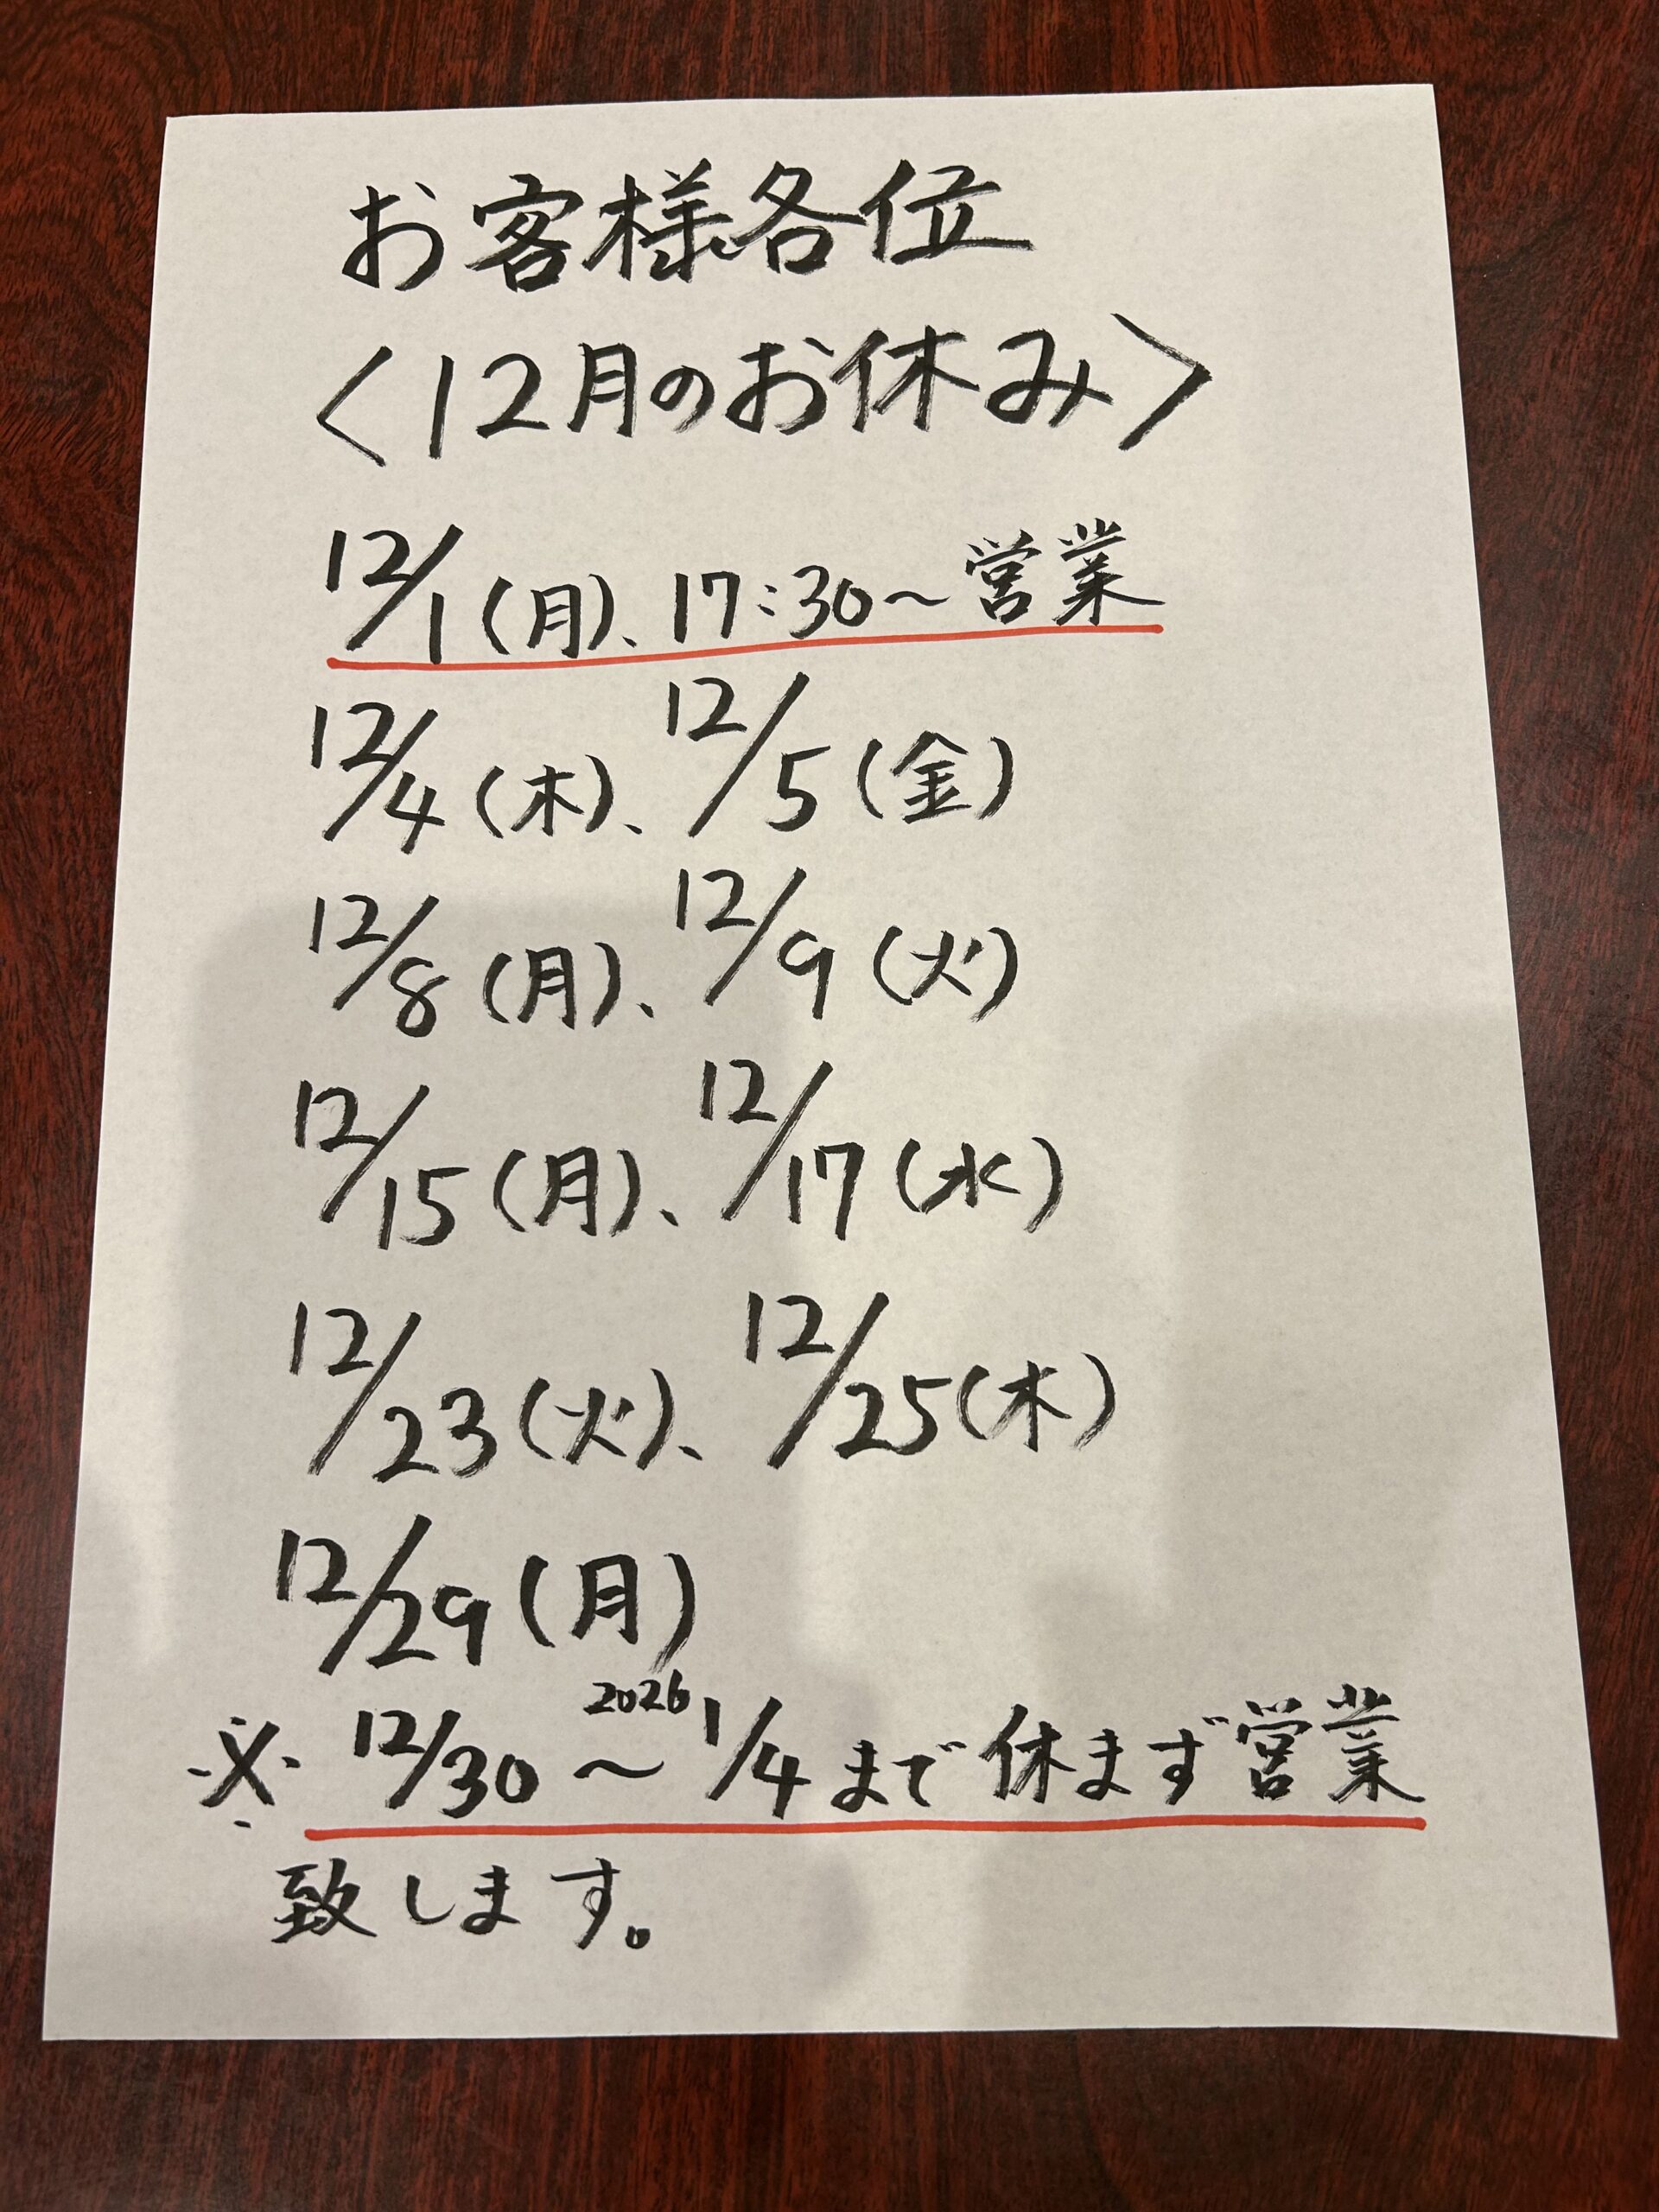 お客様各位
〈12月のお休み〉
12/1(月)、17:30〜営業
12/4(木)、12/5(金)
12/8(月)、12/9(火)
12/15(月)、12/17(水)
12/23(火)、12/25(木)
12/29(月)
※ 12/30〜2026 1/4まで休まず営業
致します。